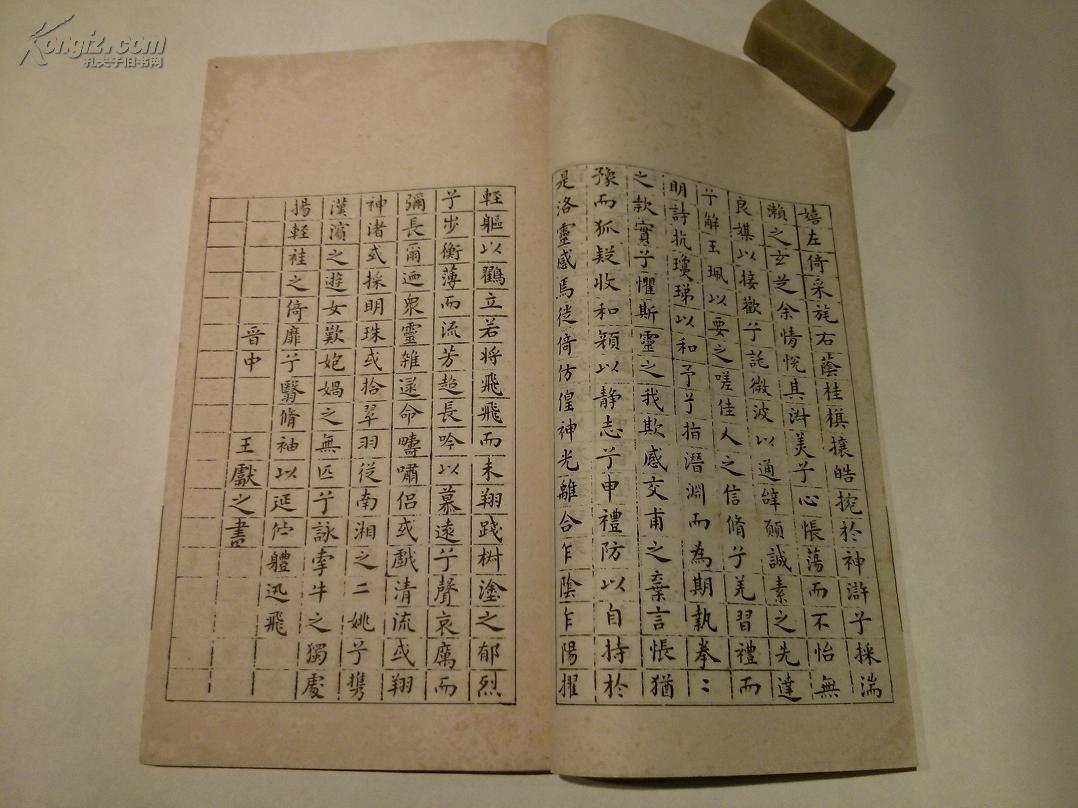 Kongfz.com
孔夫子旧书网
嬉左倚采旄右蔭桂棋攘皓捥於神滸兮採湍
瀨之玄芝余情悅其淑美兮心悵蕩而不怡無
良媒以接歡兮託微波以通辞願誠素之先達
兮解玉珮以要之嗟佳人之信脩兮羌習禮而
明詩抗瓊珶以和予兮指潛淵而為期執拳〻
之款實兮懼斯靈之我欺感交甫之棄言悵猶
豫而狐疑收和顏以静志兮申禮防以自持於
是洛靈感焉徙倚仿偟神光離合乍陰乍陽擢
輕軀以鸖立若将飛飛而未翔踐椒塗之郁烈
兮步衡薄而流芳超長吟以慕遠兮聲哀厲而
彌長爾迺衆靈雜遝命疇嘯侣或戲清流或翔
神渚或採明珠或拾翠羽從南湘之二姚兮攜
漢濱之遊女歎𡛖媧之無匹兮詠牽牛之獨處
揚輕袿之倚靡兮翳脩袖以延佇軆迅飛
晋中 王獻之書